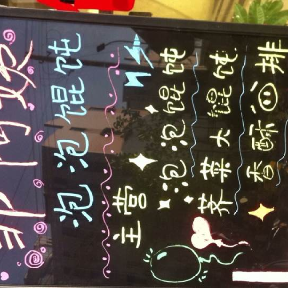 阿婆
泡泡馄饨
主营
泡泡馄饨
荠菜大馄饨
香酥排